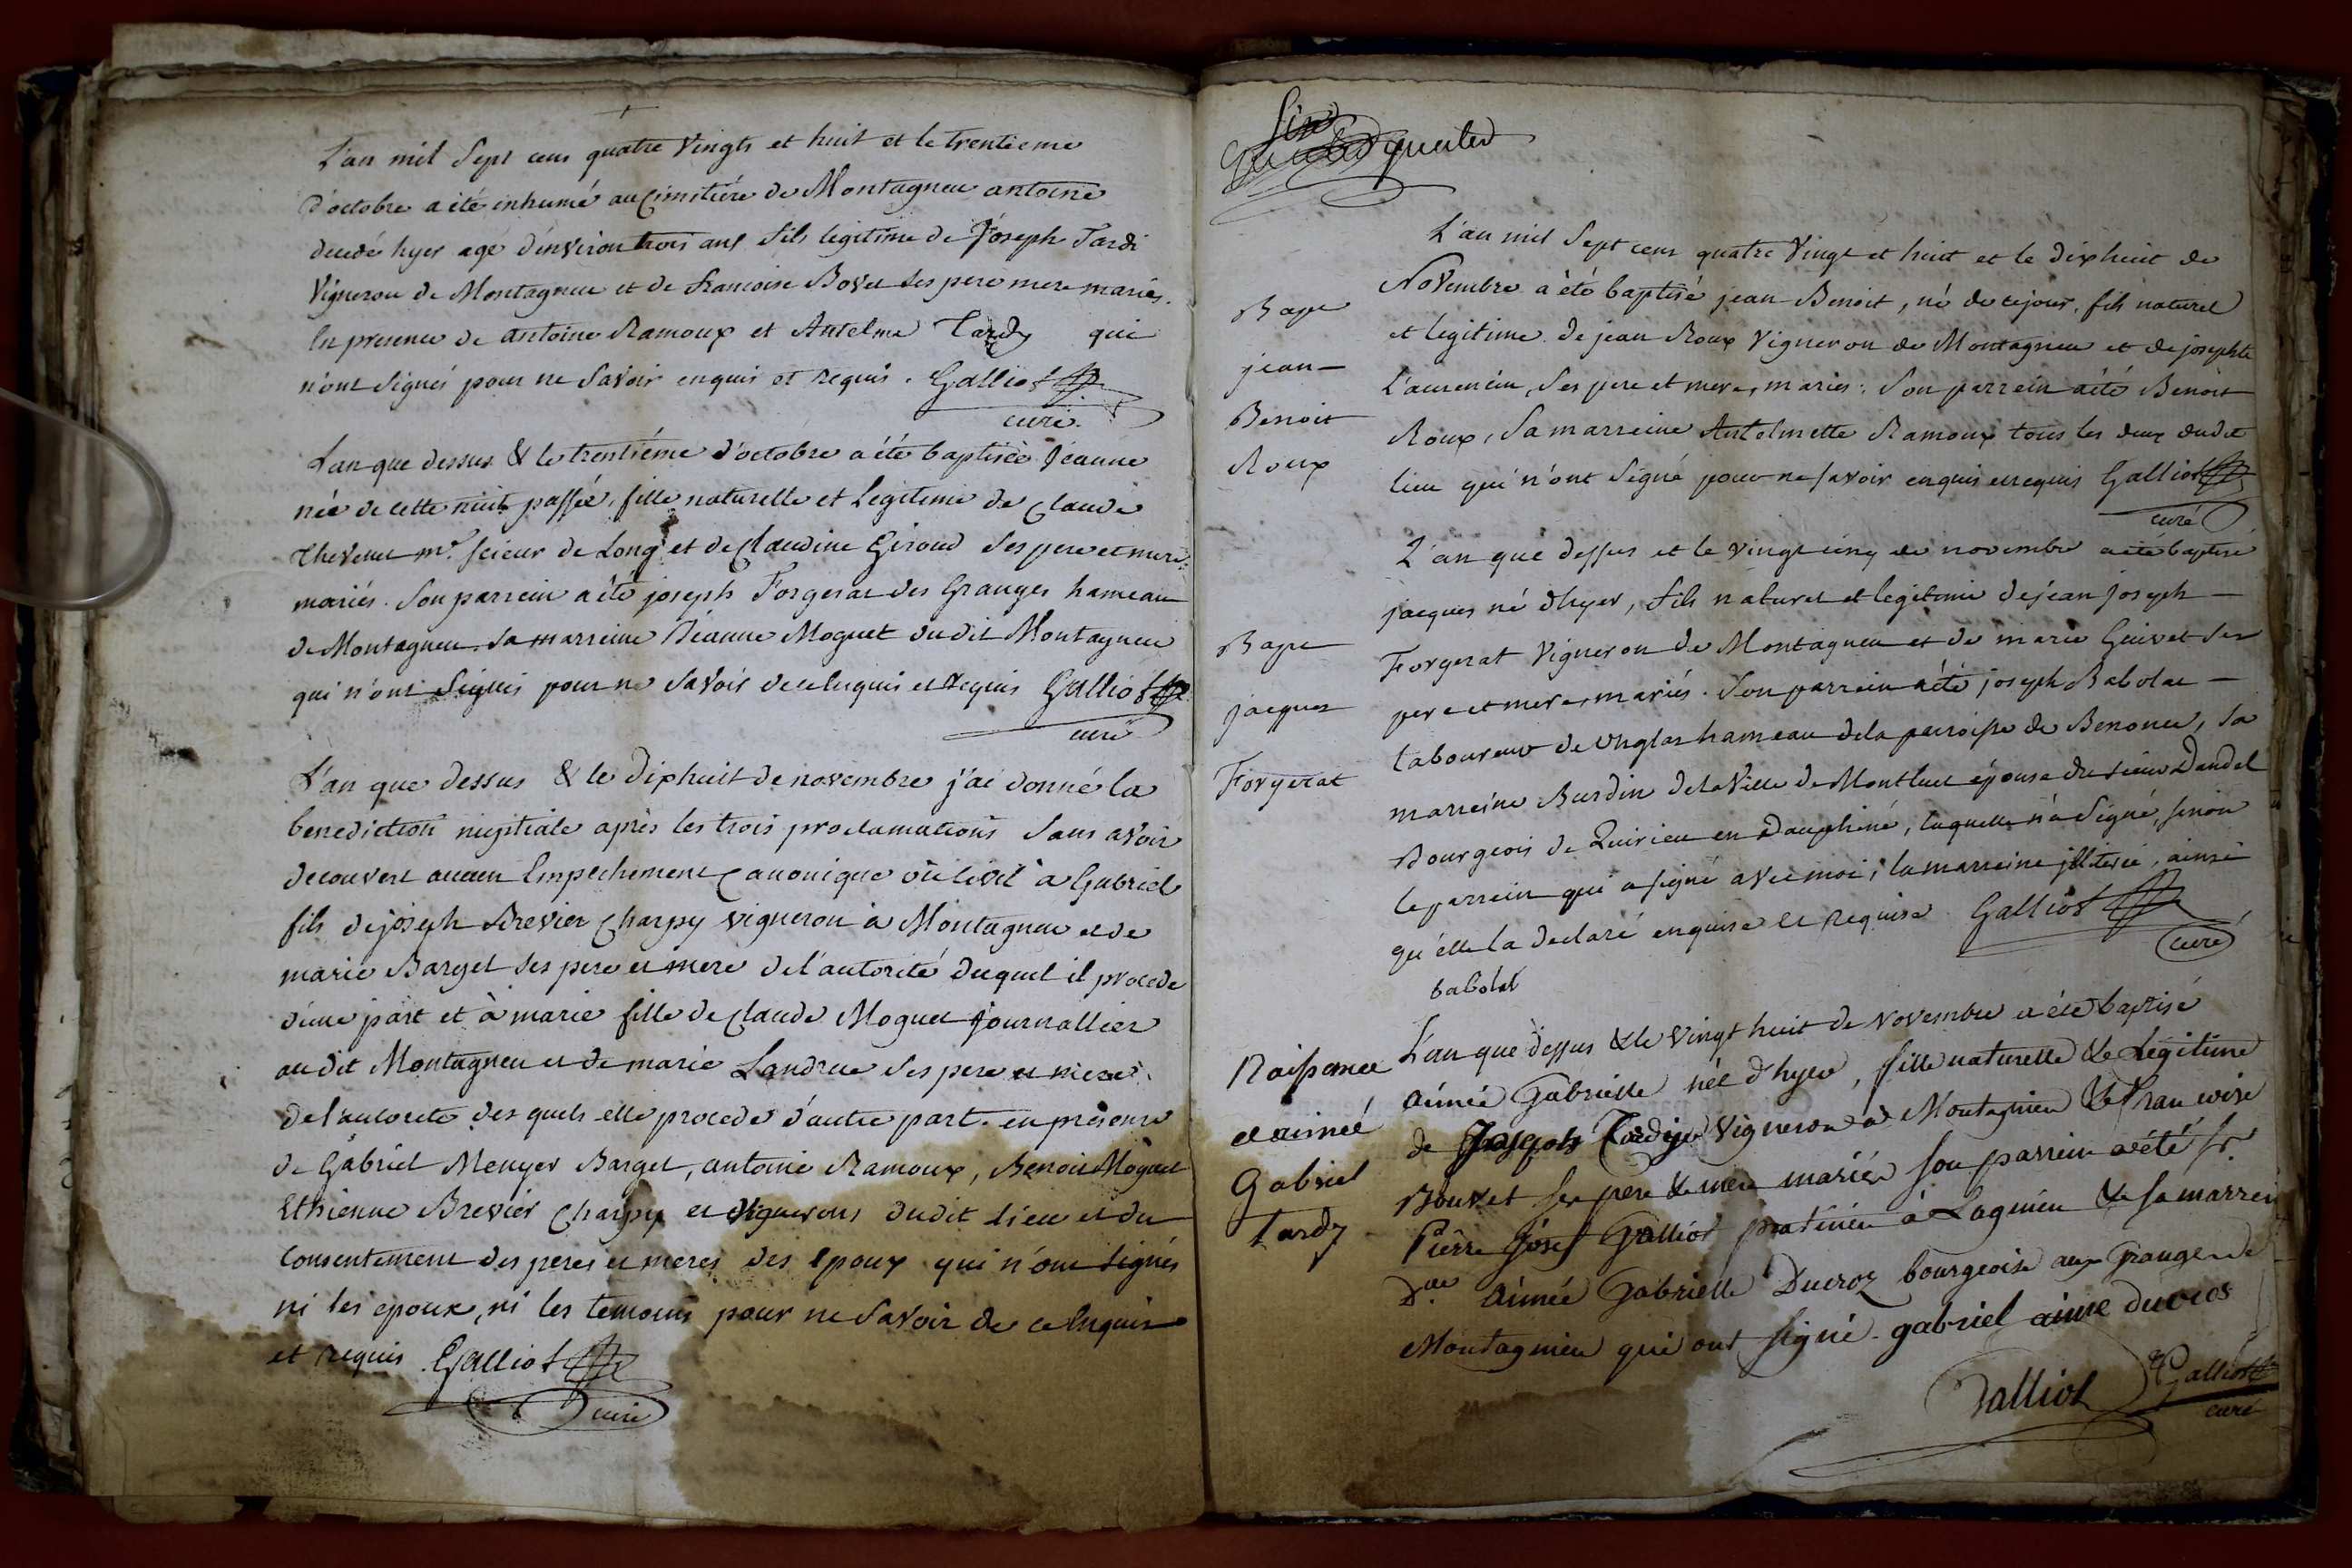 L'an mil Sept cens quatre Vingts et huit et le trentieme
d'octobre a été inhumé au Cimitiére de Montagneu antoine
decedé hyer agé d'environ trois ans fils legitime de Joseph Tardi
Vigneron de Montagneu et de francoise Bovet ses pere mere mariés.
En presence de antoine Ramoux et Antelme Tardy qui
n'ont signés pour ne Savoir enquis et requis. Galliot
curé.
L'an que dessus & le trentiéme d'octobre a été baptisée Jeanne
née de cette nuit passée, fille naturelle et Legitime de Claude
Thevenet mr. scieur de Long et de Claudine Giroud ses pere et mere
mariés. Son parrein a été joseph Forgerat des Granges hameau
de Montagneu. sa marreine Jeanne Moguet dudit Montagneu
qui n'ont signés pour ne Savoir de ce Enquis et Requis Galliot
curé
L'an que dessus & le dixhuit de novembre j'ai donné la
benediction nuptiale après les trois proclamations sans avoir
decouvert aucun Empechement Canonique ou Civil à Gabriel
fils de joseph Brevier Charpy vigneron à Montagneu et de
marie Barget ses pere et mere de l'autorité duquel il procede
d'une part et à marie fille de Claude Moguet Journallier
audit Montagneu et de marie Landrue ses pere et mere
de l'autorité des quels elle procede d'autre part. en presence
de Gabriel Menyer Barget, antoine Ramoux, Benoit Moguet
Ethienne Brevier Charpy et Vignerons dudit Lieu et du
Consentement des peres et meres des epoux qui n'ont signés
ni les epoux, ni les temoins pour ne Savoir de ce Enquis
et requis. Galliot
curé
Six
quater
L'an mil Sept cens quatre Vingt et huit et le dixhuit de
Novembre a été baptisé jean Benoit, né de ce jour, fils naturel
et legitime de jean Roux Vigneron de Montagneu et de josephte
Laurencin, ses pere et mere, mariés. Son parrein a été Benoit
Roux, Sa marreine Antelmette Ramoux tous les deux dudit
lieu qui n'ont Signé pour ne savoir enquis et requis Galliot
curé
Bape
jean
Benoit
Roux
L'an que dessus et le vingt cinq de novembre a été baptisé
jacques né d'hyer, fils naturel et legitime de jean joseph
Forgerat Vigneron de Montagneu et de marie Guivet ses
pere et mere, mariés. Son parrein a été joseph Babolat
laboureur de Onglas hameau de la parroisse de Benonce, Sa
marreine Burdin de la Ville de Montluel épouse du sieur Dandel
Bourgeois de Quirieu en Dauphiné, laquelle n'a Signé, sinon
le parrein qui a signé avec moi; la marreine illiterée, ainsi
qu'elle la declaré enquise et requise. Galliot
curé
babolat
Bape
jacques
Forgerat
L'an que dessus & le Vingt huit de Novembre a été baptisé
aimée Gabrielle née d'hyer, fille naturelle & Légitime
de Joseph Tardy Vigneron à Montagnieu & de francoise
Bouvet ses pere & mere mariés son parrein a été sr.
Pierre Josef Galliot praticien à Lagnieu & sa marrein
Dlle aimée Gabrielle Ducroz bourgeoise aux granges de
Montagnieu qui ont signé. gabriel aime ducros
Galliot Galliot
curé
Naissance
et aimée
Gabriel
Tardy